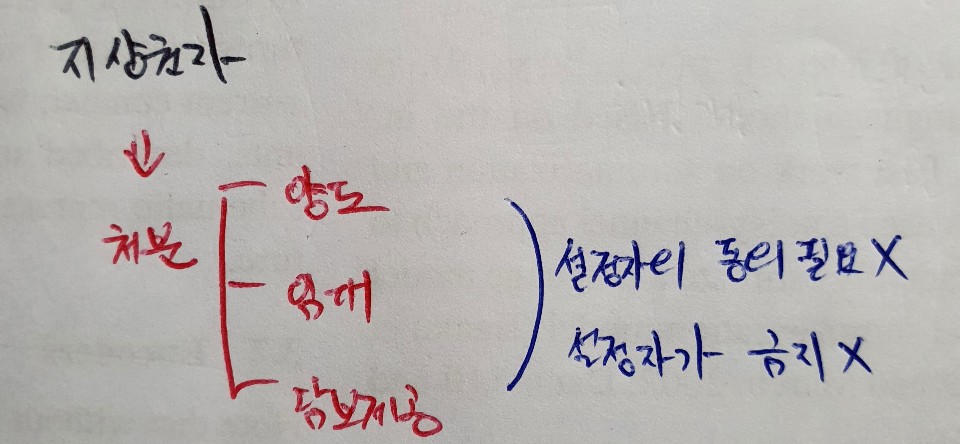 지상권자
↓
처분
양도
임대
담보제공
설정자의 동의 필요 X
설정자가 금지 X